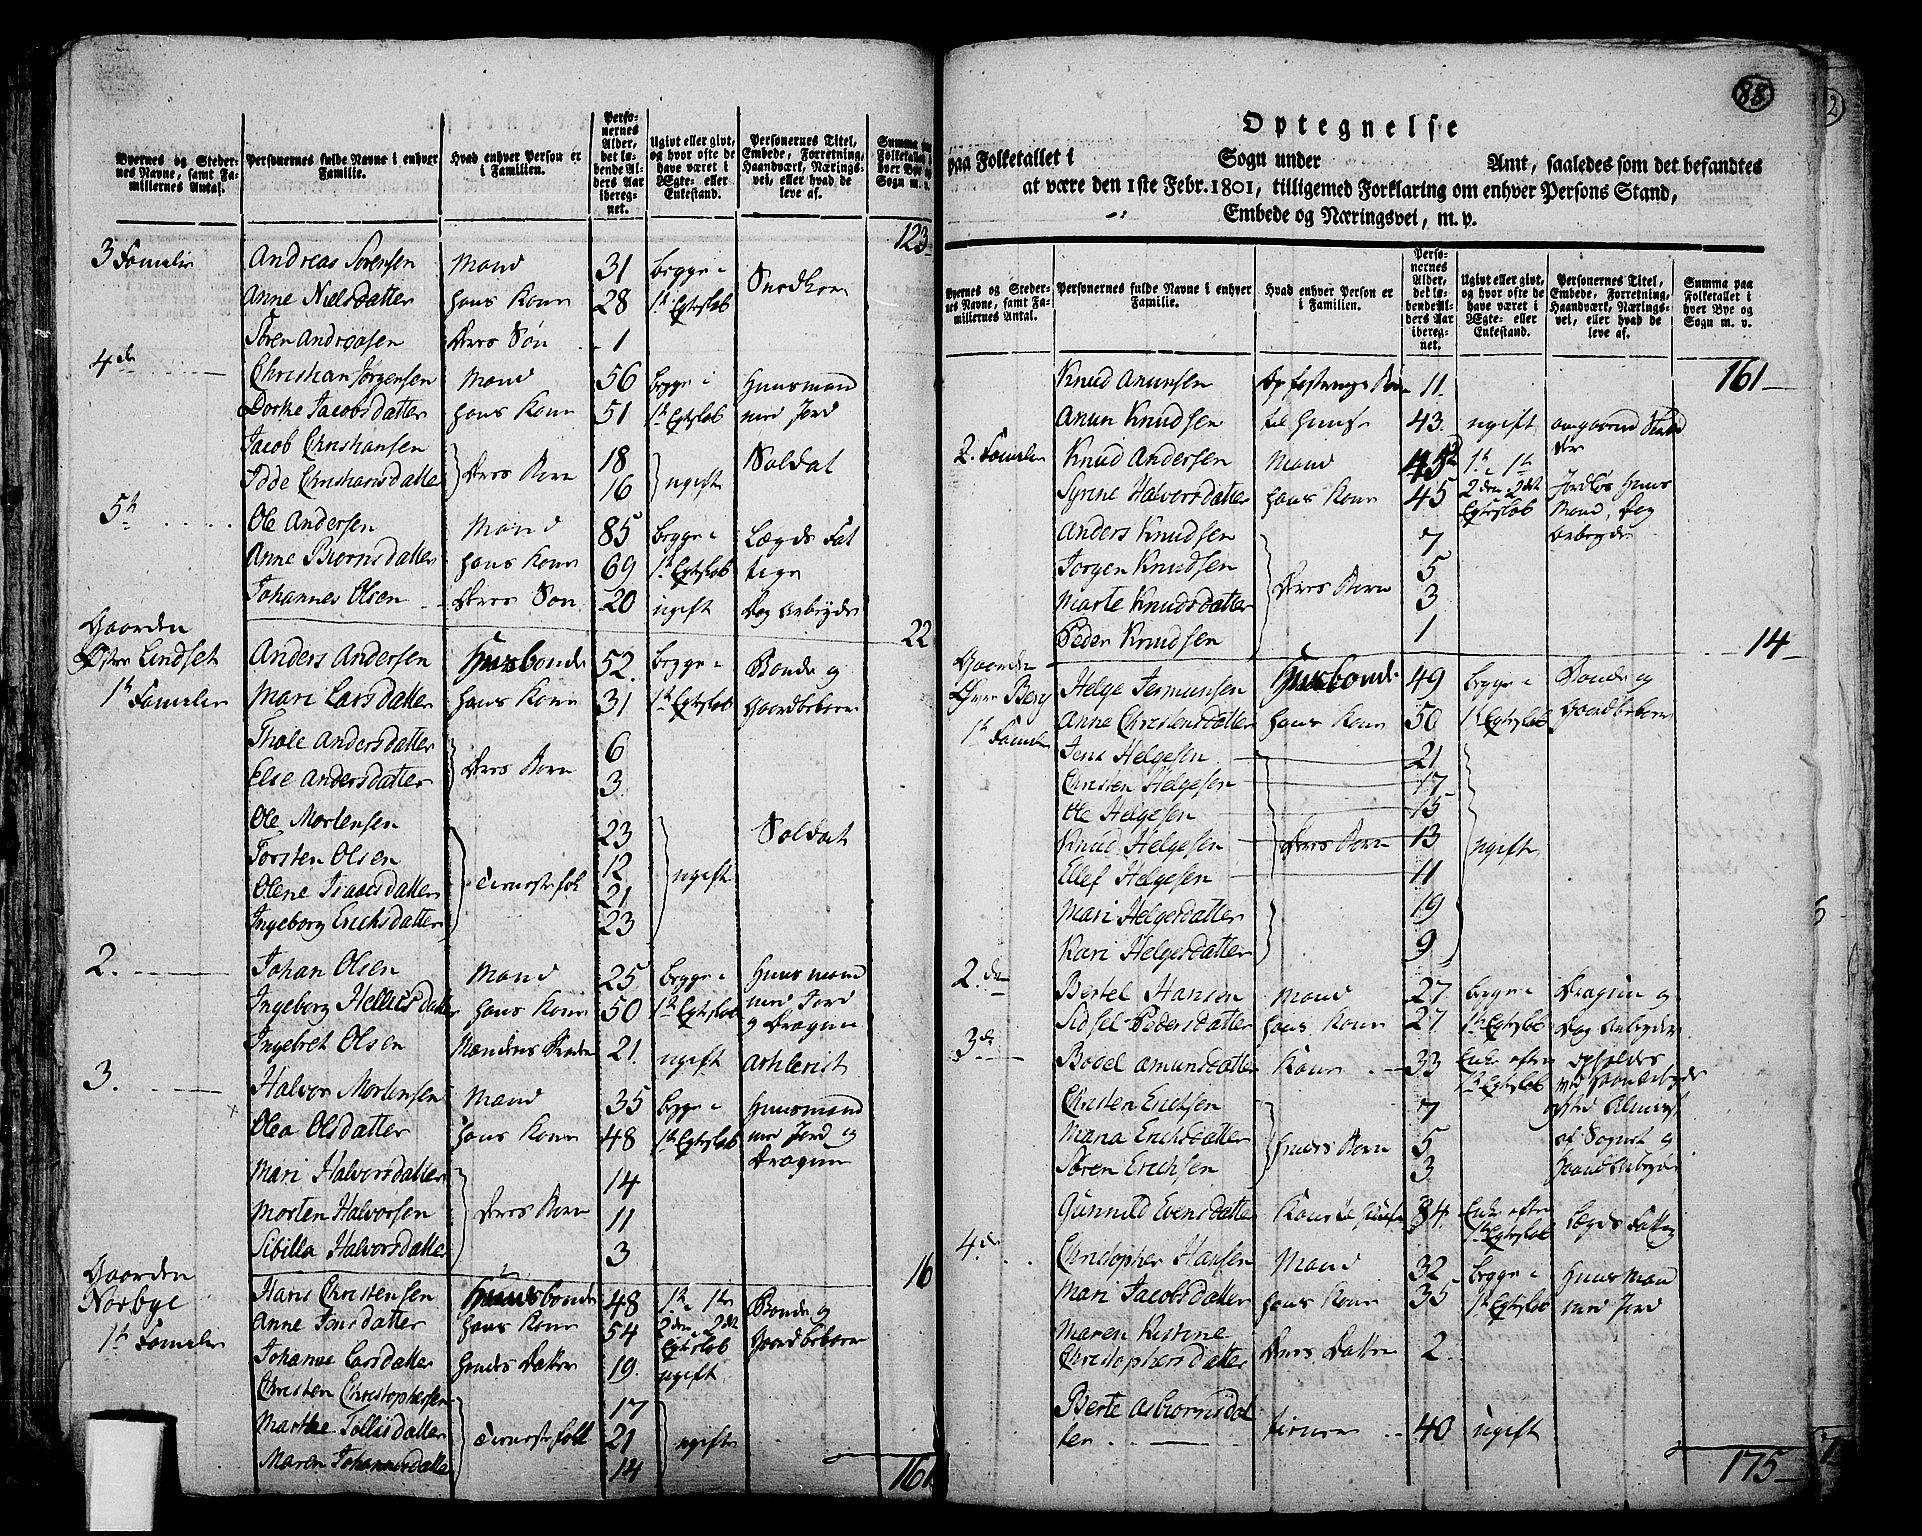 Byernes og Steder-
nes Navne, samt Fa-
miliernes Antal.
Personernes fulde Navne i enhver
Familie.
Hvad enhver Person er
i Familien.
Perso-
nernes
Alder,
det lø-
bende Al-
ders Aar
ibereg-
net.
Ugivt eller givt,
og hvor ofte de
have været i
Ægte- eller
Enkestand.
Personernes Titel,
Embede, Forretning,
Haandværk, Nærings-
vei, eller hvad de
leve af.
Summa paa
Folketallet i
hver Bye og
Sogn m. v.
123
3 Familie Andreas Sørensen Mand 31 begge i
Anne Nielsdatter hans Kone 28 1te Egteskab
Søren Andreasen Deres Søn 1
4de Christian Jørgensen Mand 56 begge i Huusmand
Dorte Jacobsdatter hans Kone 51 1te Egteskab med Jord
Jacob Christiansen 18 Soldat
Deres Børn ugift
Christiansdatter 16
5te Ole Andersen Mand 85 begge i Lægds Fat
Anne Biørnsdatter hans Kone 69 1te Egteskab tige
Johannes Olsen Deres Søn 20 ugift Dag Arbeyder
22
Gaarden
Østre Lindset Anders Andersen Huusbonde 52 begge i Bonde og
1te Familie Mari Larsdatter hans Kone 31 1te Egteskab Gaardbeboer
Thole Andersdatter 6
Deres Børn
Else Andersdatter 3
Ole Mortensen 23 Soldat
Torsten Olsen 12
Tieneste folk ugift
Olene Isaacsdatter 21
Ingeborg Erichsdatter 23
2. Johan Olsen Mand 25 begge i Huusmand
Ingeborg Hellisdatter hans Kone 50 1te Egteskab med Jord
og Dragun
Ingebret Olsen Mandens Broder 21 ugift Artilerist
3. Halvor Mortensen Mand 35 begge i Huusmand
Olea Olsdatter hans Kone 48 1te Egteskab med Jord og
Dragun
Mari Halvorsdatter 14
Morten Halvorsen Deres Børn 11
Sibilla Halvorsdatter 3
16
Gaarden
Norbye Hans Christensen Huusbonde 48 1te 1te Bonde og
1te Familie Anne Jensdatter hans Kone 54 2den 2det Gaardbeboer
Egteskab
Johanne Larsdatter hendes Datter 19 ugift
Christen Christophersen 17
Marthe Tollisdatter Tienestefolk 21 ugift
Maren Johannesdatter 14
161
88
Optegnelse
paa Folketallet i Sogn under Amt, saaledes som det befandtes
at være den 1ste Febr. 1801, tilligemed Forklaring om enhver Persons Stand,
Embede og Næringsvei, m. v.
Byernes og Steder-
nes Navne, samt Fa-
miliernes Antal.
Personernes fulde Navne i enhver
Familie.
Hvad enhver Person er
i Familien.
Perso-
nernes
Alder,
det lø-
bende Al-
ders Aar
ibereg-
net.
Ugivt eller givt,
og hvor ofte de
have været i
Ægte- eller
Enkestand.
Personernes Titel,
Embede, Forretning,
Haandværk, Nærings-
vei, eller hvad de
leve af.
Summa paa
Folketallet i
hver Bye og
Sogn m. v.
161
Knud Amunsen Opfostrings Barn 11
Amun Knudsen til Huuse 43 ugift
2. Familie Knud Andersen Mand 1te 1te
Syrene Halvorsdatter hans Kone 45 2den 2det Jordløs Huus
Egteskab Mand, Dag
Anders Knudsen 7 arbeyder
Jorgen Knudsen 5
Deres Børn
Marte Knudsdatter 3
Peder Knudsen 1
14
Gaarden
Øvre Berg Helge Jermunsen Huusbonde 49 begge i Bonde og
1te Familie Anne Christensdatter hans Kone 50 1te Egteskab Gaardbeboer
Jens Helgesen 21
Christen Helgesen 17
Ole Helgesen 15
Knud Helgesen Deres Børn 13 ugift
Ellef Helgesen 11
Mari Helgesdatter 19
Kari Helgesdatter 9
2.den Bertel Hansen Mand 27 begge i Dragun og
Sidsel Pedersdatter hans Kone 27 1te Egteskab Dag Arbeyder
3de Bodel Amunsdatter Kone 33 Enke efter opholdes
1te Egteskab ved Haandarbeyde
Christen Erichsen 7
Maria Erichsdatter hendes Børn 5 af Sognet og
Søren Erichsen 3 Haand Arbeyde
Gunnild Evensdatter Kone til Huuse 34 Enke efter Lægds Fattig
1te Egteskab
4.de Christopher Hansen Mand 32 begge i Huusmand
Mari Jacobsdatter hans Kone 35 1te Egteskab med Jord
Maren Kistine
Christophersdatter Deres Datter 2
Berte Asbiørnsdat
ter tiener 40 ugift
175